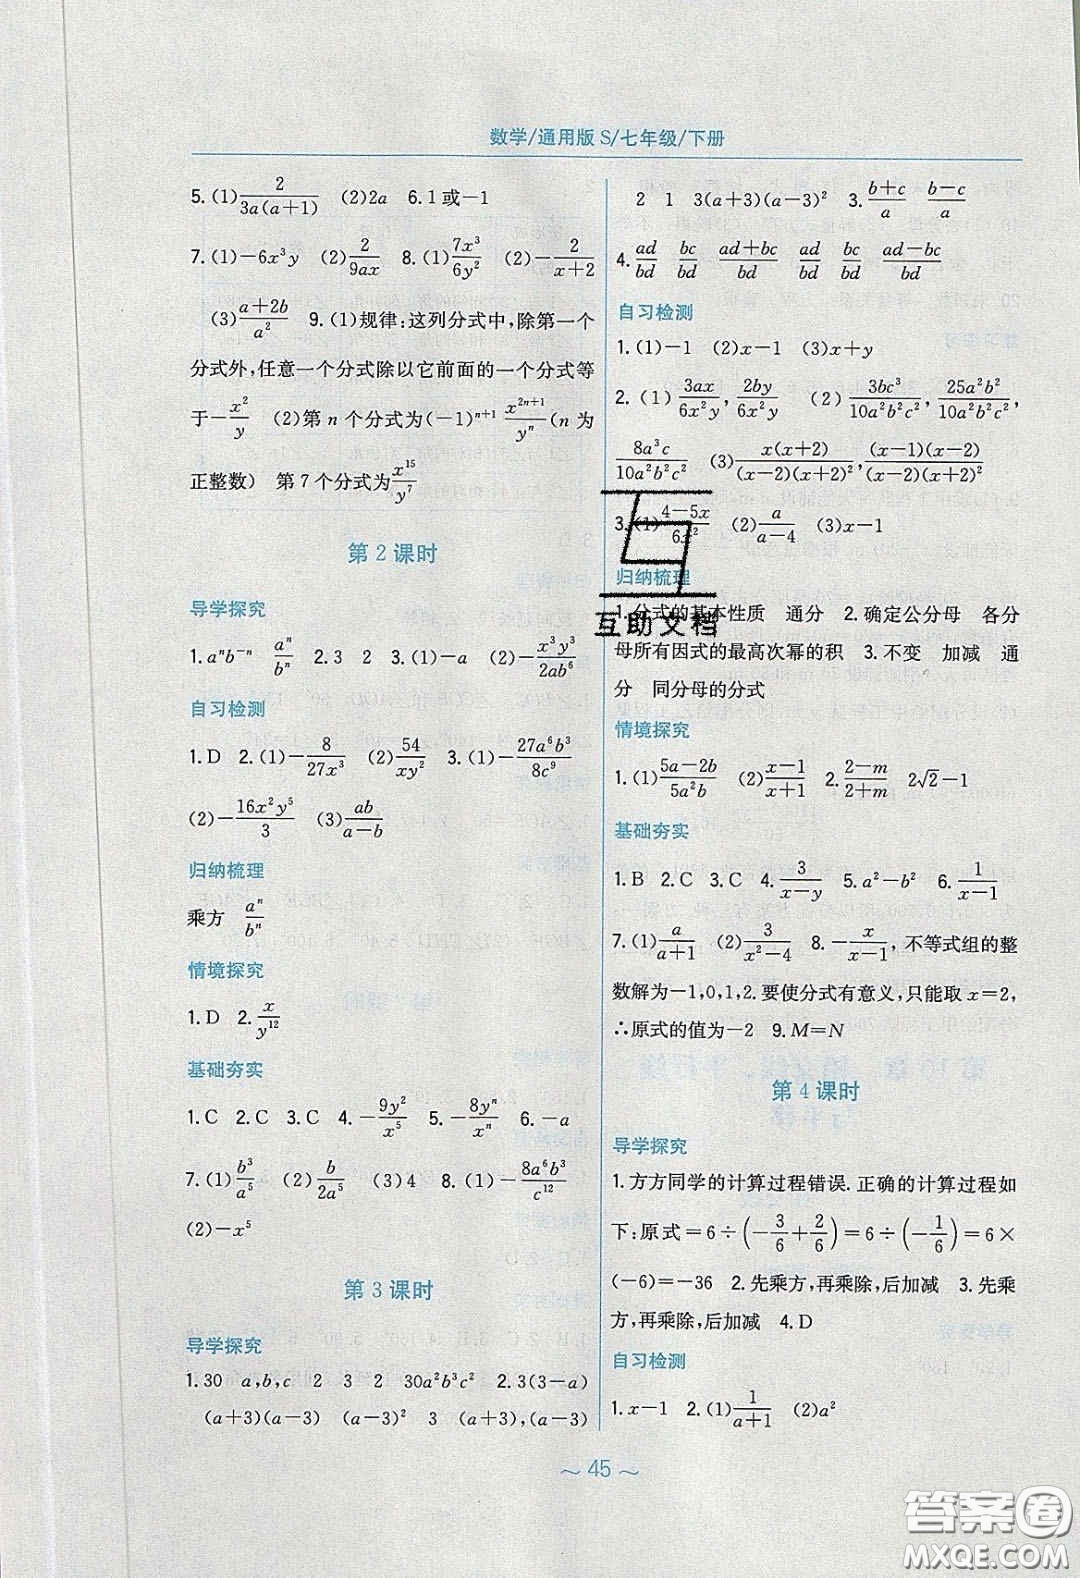 数学/通用版 S/七年级/下册
5.(1)2/(3a(a+1)) (2)2a 6.1或-1
7.(1)-6x³y (2)2/(9ax) 8.(1)7x³/(6y²) (2)-2/(x+2)
(3)(a+2b)/a² 9.(1)规律:这列分式中,除第一个
分式外,任意一个分式除以它前面的一个分式等
于-x²/y (2)第n个分式为(-1)ⁿ⁺¹ x²ⁿ⁺¹/yⁿ(n为
正整数) 第7个分式为x¹⁵/y⁷
第2课时
导学探究
1.aⁿb⁻ⁿ aⁿ/bⁿ 2.3 2 3.(1)-a (2)-x³y³/(2ab⁶)
自习检测
1.D 2.(1)-8/(27x³) (2)54/(xy²) 3.(1)-27a⁶b³/(8c⁹)
(2)-16x²y⁵/3 (3)ab/(a-b)
归纳梳理
乘方 aⁿ/bⁿ
情境探究
1.D 2.x/y¹²
基础夯实
1.C 2.C 3.C 4.-9y²/x⁵ 5.-8yⁿ/xⁿ 6.-a
7.(1)b³/a⁵ (2)b/(2a⁵) (3)4 8.(1)-8a⁶b³/c¹²
(2)-x⁵
第3课时
导学探究
1.30 a,b,c 2 3 2 30a²b³c² 2.3(3-a)
(a+3)(a-3) (a-3)² 3 (a+3),(a-3)
2 1 3(a+3)(a-3)² 3.(b+c)/a (b-c)/a
4.ad/bd bc/bd (ad+bc)/bd ad/bd bc/bd (ad-bc)/bd
自习检测
1.(1)-1 (2)x-1 (3)x+y
2.(1)3ax/(6x²y),2by/(6x²y) (2)3bc³/(10a²b²c²),25a²b²/(10a²b²c²),
8a³c/(10a²b²c²) (3)x(x+2)/((x-2)(x+2)²),(x-1)(x-2)/((x-2)(x+2)²)
3.(1)(4-5x)/(6x²) (2)a/(a-4) (3)x-1
归纳梳理
1.分式的基本性质 通分 2.确定公分母 各分
母所有因式的最高次幂的积 3.不变 加减 通
分 同分母的分式
互助文档
情境探究
1.(1)(5a-2b)/(5a²b) (2)(x-1)/(x+1) 2.(2-m)/(2+m) 2√2-1
基础夯实
1.B 2.C 3.C 4.3/(x-y) 5.a²-b² 6.1/(x-1)
7.(1)a/(a+1) (2)3/(x²-4) 8.-x/(x-1),不等式组的整
数解为-1,0,1,2.要使分式有意义,只能取x=2,
∴原式的值为-2 9.M=N
第4课时
导学探究
1.方方同学的计算过程错误.正确的计算过程如
下:原式=6÷(-3/6+2/6)=6÷(-1/6)=6×
(-6)=-36 2.先乘方,再乘除,后加减 3.先乘
方,再乘除,后加减 4.D
自习检测
1.x-1 2.(1)1/(a+1) (2)a²
~ 45 ~
答案圈
MXQE.COM